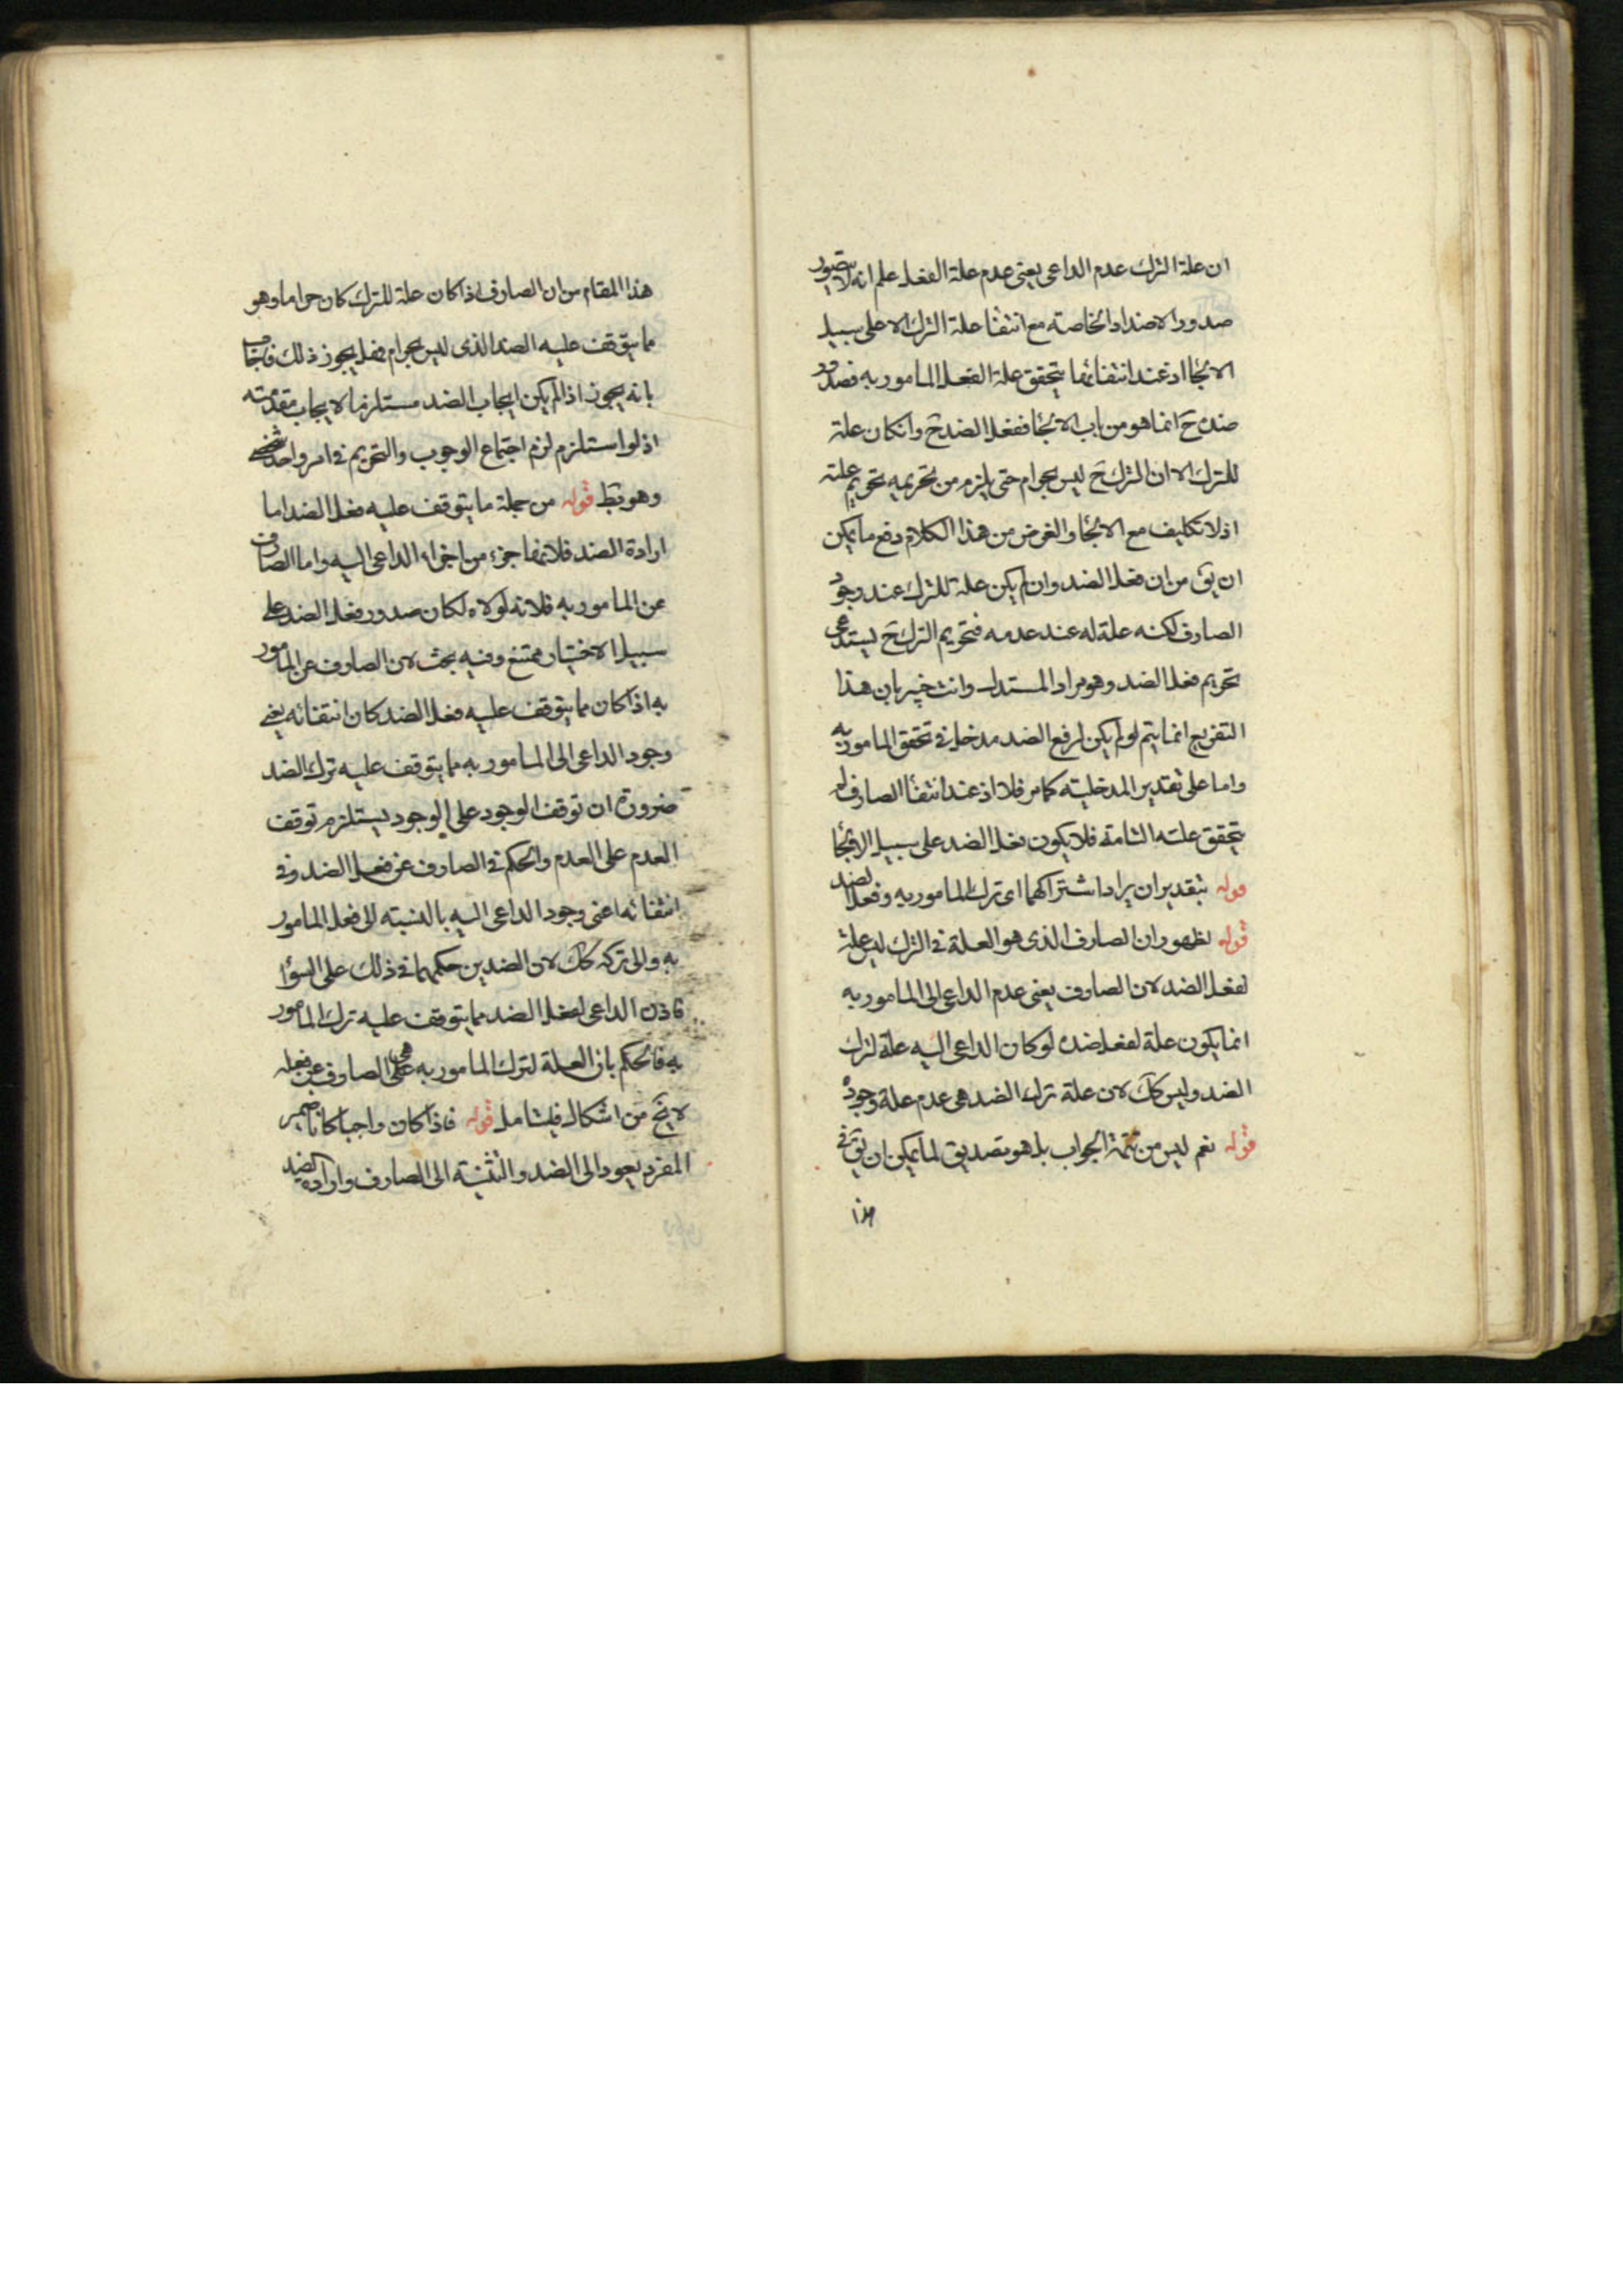 ان علة الترك عدم الداعى يعنى عدم علة الفعل علم انه لا يتصور
صدور الاضداد الخاصة مع انتفا علة الترك الا على سبيل
الالجا اذ عند انتفائها يتحقق علة الفعل المامور به فصدور
ضده ح انما هو من باب الالجا ففعل الضد ح وانكان علة
للترك الا ان الترك ح ليس بحرام حتى يلزم من تحريمه تحريم علته
اذ لا تكليف مع الالجا والغرض من هذا الكلام دفع ما يمكن
ان يق من ان فعل الضد وان لم يكن علة للترك عند وجود
الصارف لكنه علة له عند عدمه فتحريم الترك ح يستدعى
تحريم فعل الضد وهو مراد المستدل وانت خبير بان هذا
التفريع انما يتم لو لم يكن لرفع الضد مدخل فى تحقق المامور به
واما على تقدير المدخلية كما مر فلا اذ عند انتفا الصارف لم
يتحقق علته التامة فلا يكون فعل الضد على سبيل الالجا
قوله بتقدير ان يراد اشتراكهما اى ترك المامور به وفعل الضد
قوله لظهور ان الصارف الذى هو العلة فى الترك ليس علة
لفعل الضد لان الصارف يعنى عدم الداعى الى المامور به
انما يكون علة لفعل ضده لو كان الداعى اليه علة لترك
الضد وليس كك لان علة ترك الضد هى عدم علة وجوده
قوله نعم ليس من تتمة الجواب بل هو تصديق لما يمكن ان يق فى
هذا
هذا المقام من ان الصارف اذا كان علة للترك كان حراما وهو
مما يتوقف عليه الضد الذى ليس بحرام فهل يجوز ذلك فاجاب
بانه يجوز اذا لم يكن ايجاب الضد مستلزما لايجاب مقدمته
اذ لو استلزم لزم اجتماع الوجوب والتحريم فى امر واحد شخصى
وهو بط قوله من جملة ما يتوقف عليه فعل الضد اما
ارادة الضد فلانها جزء من اجزاء الداعى اليه واما الصارف
عن المامور به فلانه لولاه لكان صدور فعل الضد على
سبيل الاختيار ممتنع وفيه بحث لان الصارف عن المامور
به اذا كان مما يتوقف عليه فعل الضد كان انتفائه يعنى
وجود الداعى الى المامور به مما يتوقف عليه ترك الضد
ضرورة ان توقف الوجود على الوجود يستلزم توقف
العدم على العدم والحكم فى الصارف عن فعل الضد وفى
انتفائه اعنى وجود الداعى اليه بالنسبة الى فعل المامور
به والى تركه كك لان الضدين حكمهما فى ذلك على السواء
فاذن الداعى لفعل الضد مما يتوقف عليه ترك المامور
به فالحكم بان العلة لترك المامور به هى الصارف عن فعله
لا يخ من اشكال فليتامل قوله فاذا كان واجبا كانا ضمير
المفرد يعود الى الضد والتثنية الى الصارف وارادة الضد